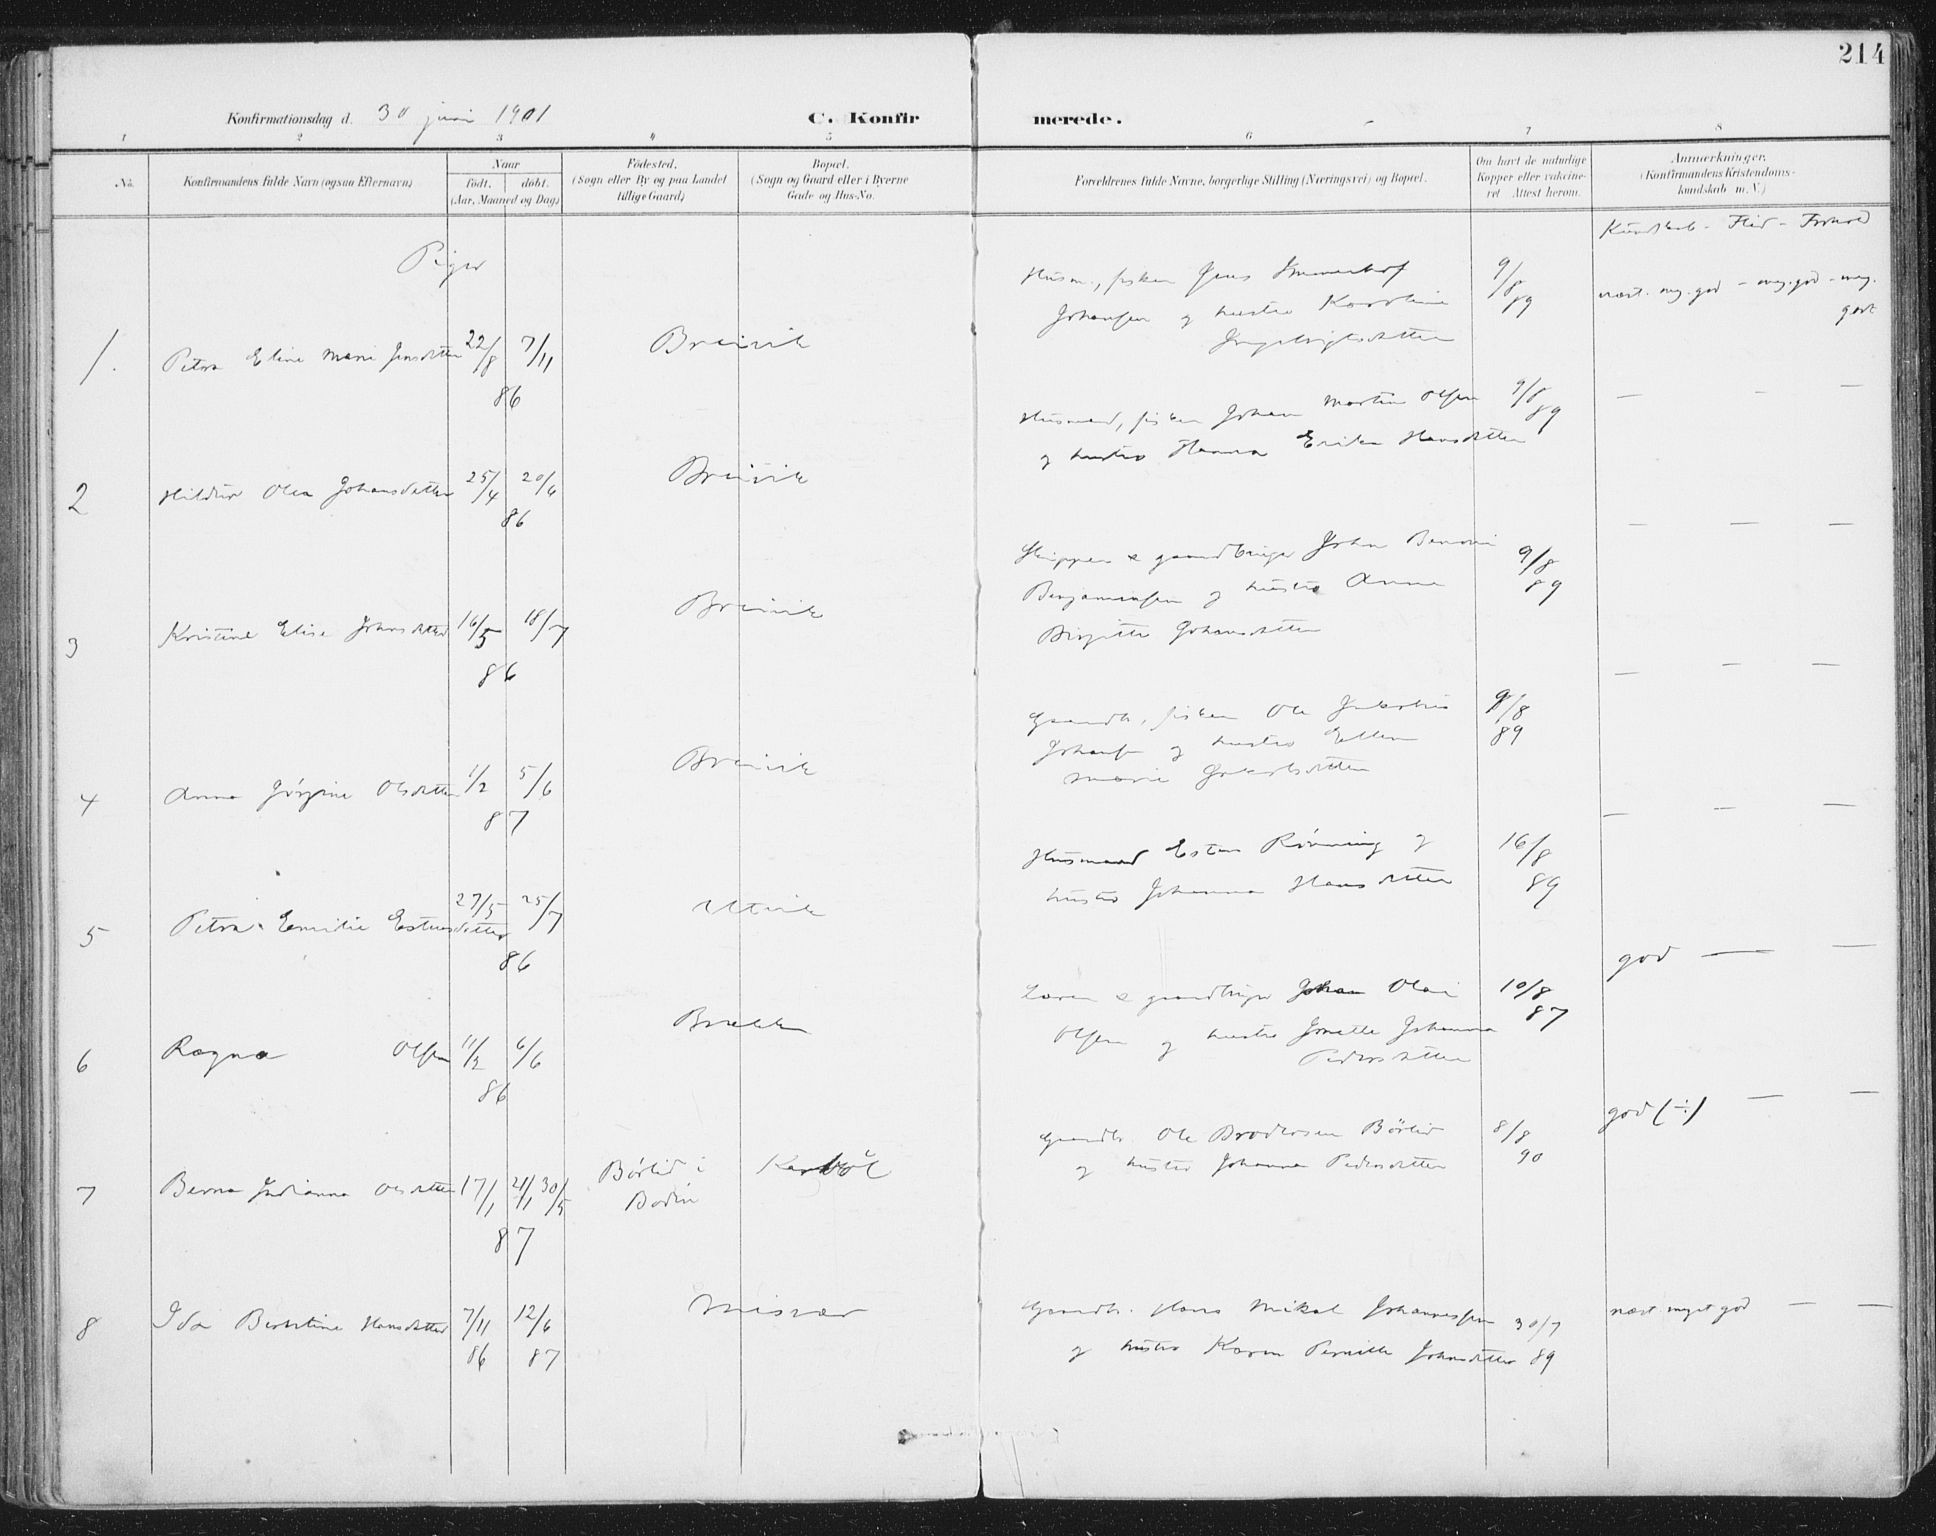 214
Konfirmationsdag d. 30 juni 1901
C. Konfirmerede.
1 2 3 4 5 6 7 8
No.
Konfirmandens fulde Navn (ogsaa Efternavn)
Naar
født. døbt.
(Aar, Maaned og Dag)
Fødested.
(Sogn eller By og paa Landet
tillige Gaard)
Bopæl.
(Sogn og Gaard eller i Byerne
Gade og Hus-No.
Forældrenes fulde Navne, borgerlige Stilling (Næringsvei) og Bopæl.
Om havt de naturlige
Kopper eller vaccine-
ret Attest herom.
Anmærkninger.
(Konfirmandens Kristendoms-
kundskab m. V.)
Kundskab - Flid - Forhold
Piger
1. Petra Eline Marie Jensdatter 22/8 7/11 86 Breivik
Husm., fisker Jens
Johansen og hustru Karoline
Ingebrigtsdatter
9/8 89
næst. meg. god - meg. god - meg.
godt
2 Hildur Olea Johansdatter 25/4 20/6 86 Breivik
Husmand, fisker Johan Martin Olsen
og hustru Hanna Erika Hansdatter
9/8 89
— — —
3 Kristine Elise Johnsdatter 16/5 18/7 86 Breivik
Skipper & gaardbruger John Benoni
Benjaminsen og hustru Anne
Birgitte Johansdatter
9/8 89
— — —
4 Anna Jørgine Olsdatter 1/2 5/6 87 Breivik
Gaardb., fisker Ole Jakobius
Johansen og hustru Ellen
Marie Jakobsdatter
9/8 89
— — —
5 Petra Emilie Estensdatter 27/5 25/7 86 Utvik
Husmand Esten Rønning og
hustru Johanna Hansdatter
16/8 89
— — —
6 Ragna Olsen 11/2 6/6 86 Brække
Lærer & gaardbruger Johan Olai
Olsen og hustru Jonette Johanna
Pedersdatter
10/8 87
god — —
7 Berna Indianna Olsdatter 17/1 21/1 30/5 87 Børlid i
Bodin
Karbøl
Gaardb. Ole Brodersen Børlid
og hustru Johanna Pedersdatter
8/8 90
god (÷) — —
8 Ida Berntine Hansdatter 7/11 86 12/6 87 Misvær
Gaardb. Hans Mikal Johannessen
og hustru Karen Pernille Johnsdatter
30/7 89
næst meget god — —